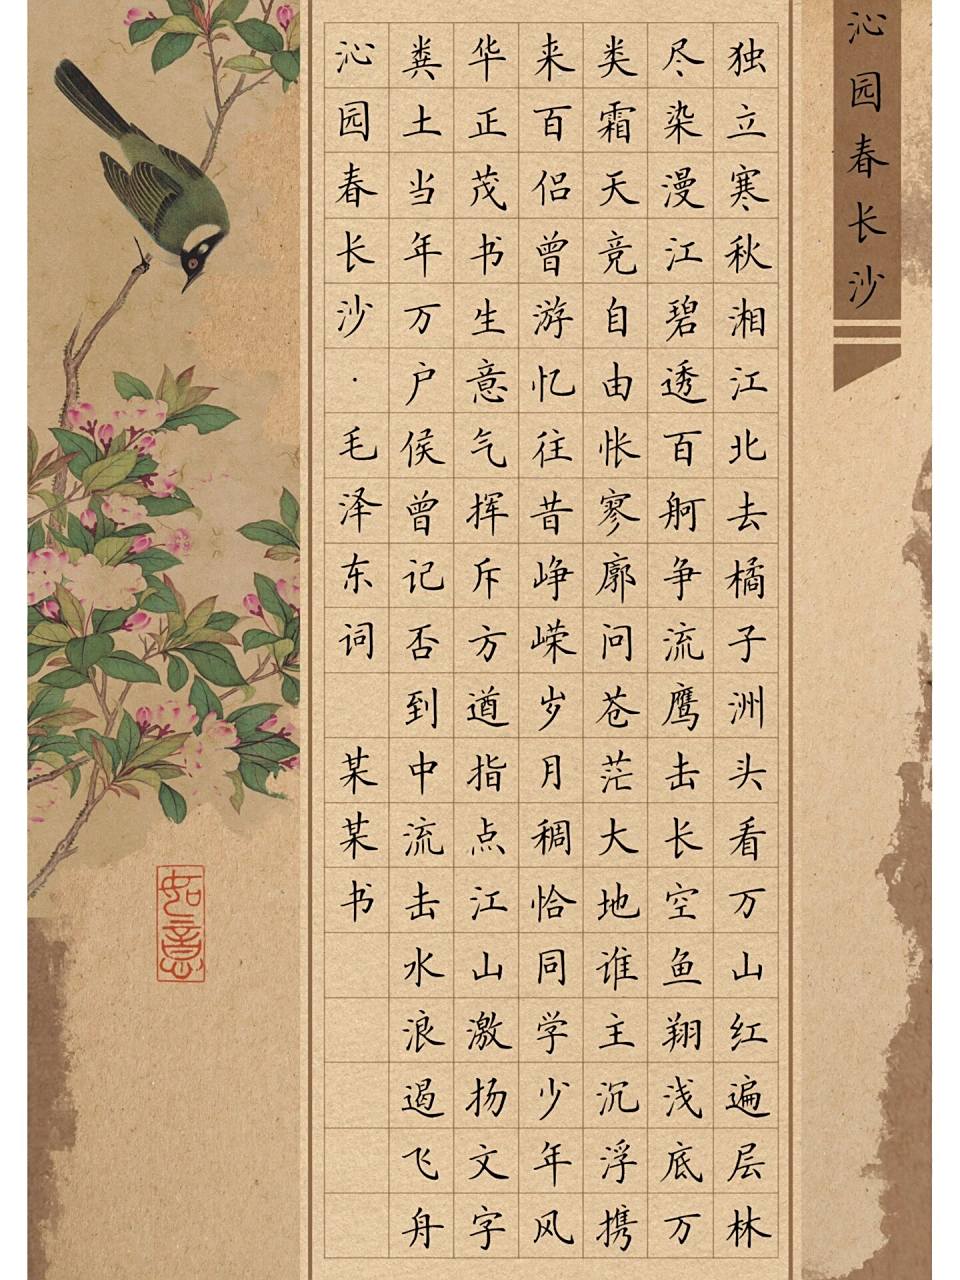 沁园春长沙
独立寒秋湘江北去橘子洲头看万山红遍层林
尽染漫江碧透百舸争流鹰击长空鱼翔浅底万
类霜天竞自由怅寥廓问苍茫大地谁主沉浮携
来百侣曾游忆往昔峥嵘岁月稠恰同学少年风
华正茂书生意气挥斥方遒指点江山激扬文字
粪土当年万户侯曾记否到中流击水浪遏飞舟
沁园春长沙·毛泽东词 某某书
如意